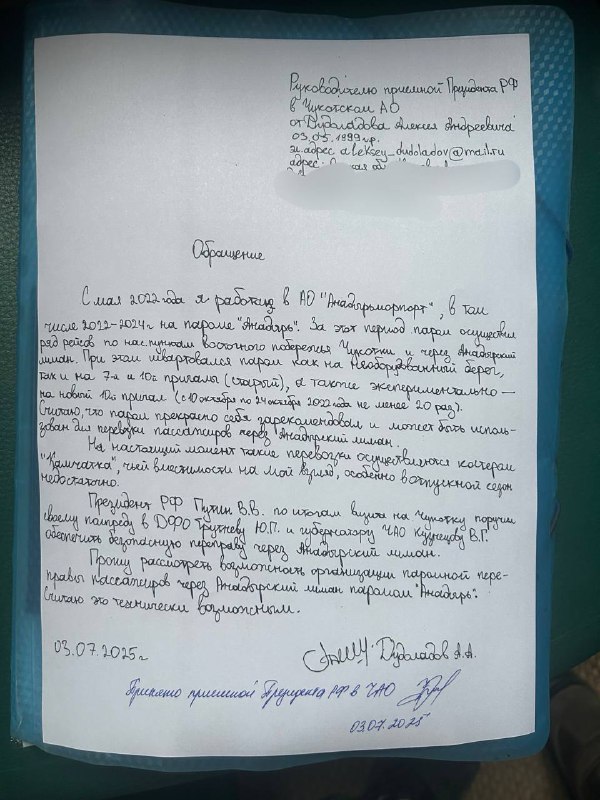 Руководителю приемной Президента РФ
в Чукотском АО
от Дудоладова Алексея Андреевича
03.05.1999 г.р.
эл. адрес aleksey_dudoladov@mail.ru
адрес:
Обращение
С мая 2022 года я работаю в АО "Анадырьморпорт", в том
числе 2022-2024г на пароме "Анадырь". За этот период паром осуществил
ряд рейсов по нас. пунктам восточного побережья Чукотки и через Анадырский
лиман. При этом швартовался паром как на необорудованный берег,
так и на 7-й и 10й причалы (старый), а также экспериментально —
на новый 10й причал (с 10 октября по 24 октября 2022 года не менее 20 раз).
Считаю, что паром прекрасно себя зарекомендовал и может быть исполь-
зован для перевозки пассажиров через Анадырский лиман.
На настоящий момент такие перевозки осуществляются катером
"Камчатка", чьей вместимости на мой взгляд, особенно в отпускной сезон
недостаточно.
Президент РФ Путин В.В. по итогам визита на Чукотку поручил
своему полпреду в ДФО Трутневу Ю.П. и губернатору ЧАО Кузнецову В.Г.
обеспечить безопасную переправу через Анадырский лиман.
Прошу рассмотреть возможность организации паромной пере-
правы пассажиров через Анадырский лиман паромом "Анадырь".
Считаю это технически возможным.
03.07.2025г Дудоладов А.А.
Принято приемной Президента РФ в ЧАО
03.07.2025